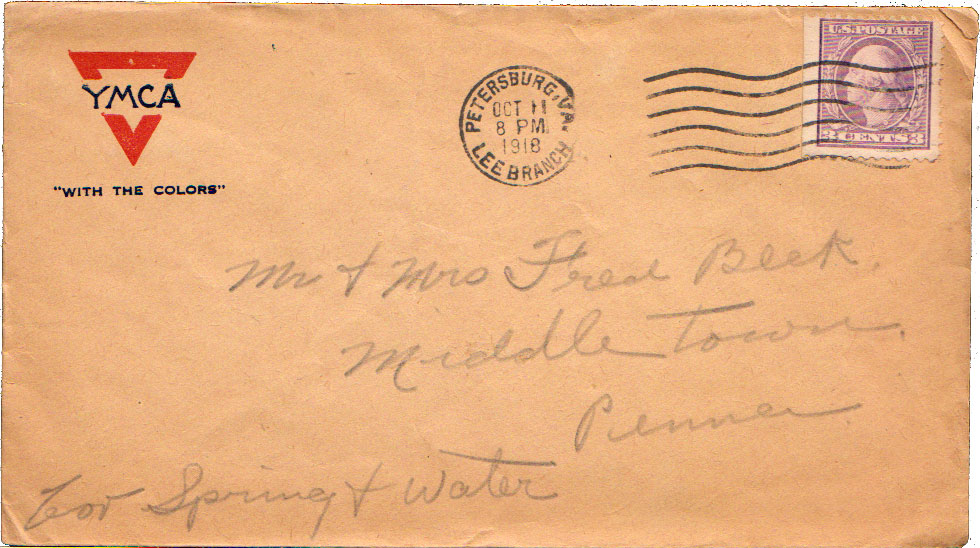 YMCA
"WITH THE COLORS"
PETERSBURG, VA.
OCT 11
8 PM
1918
LEE BRANCH
U.S. POSTAGE
3 CENTS 3
Mr & Mrs Fred Beck.
Middle Town.
Penna
Cor Spring & Water